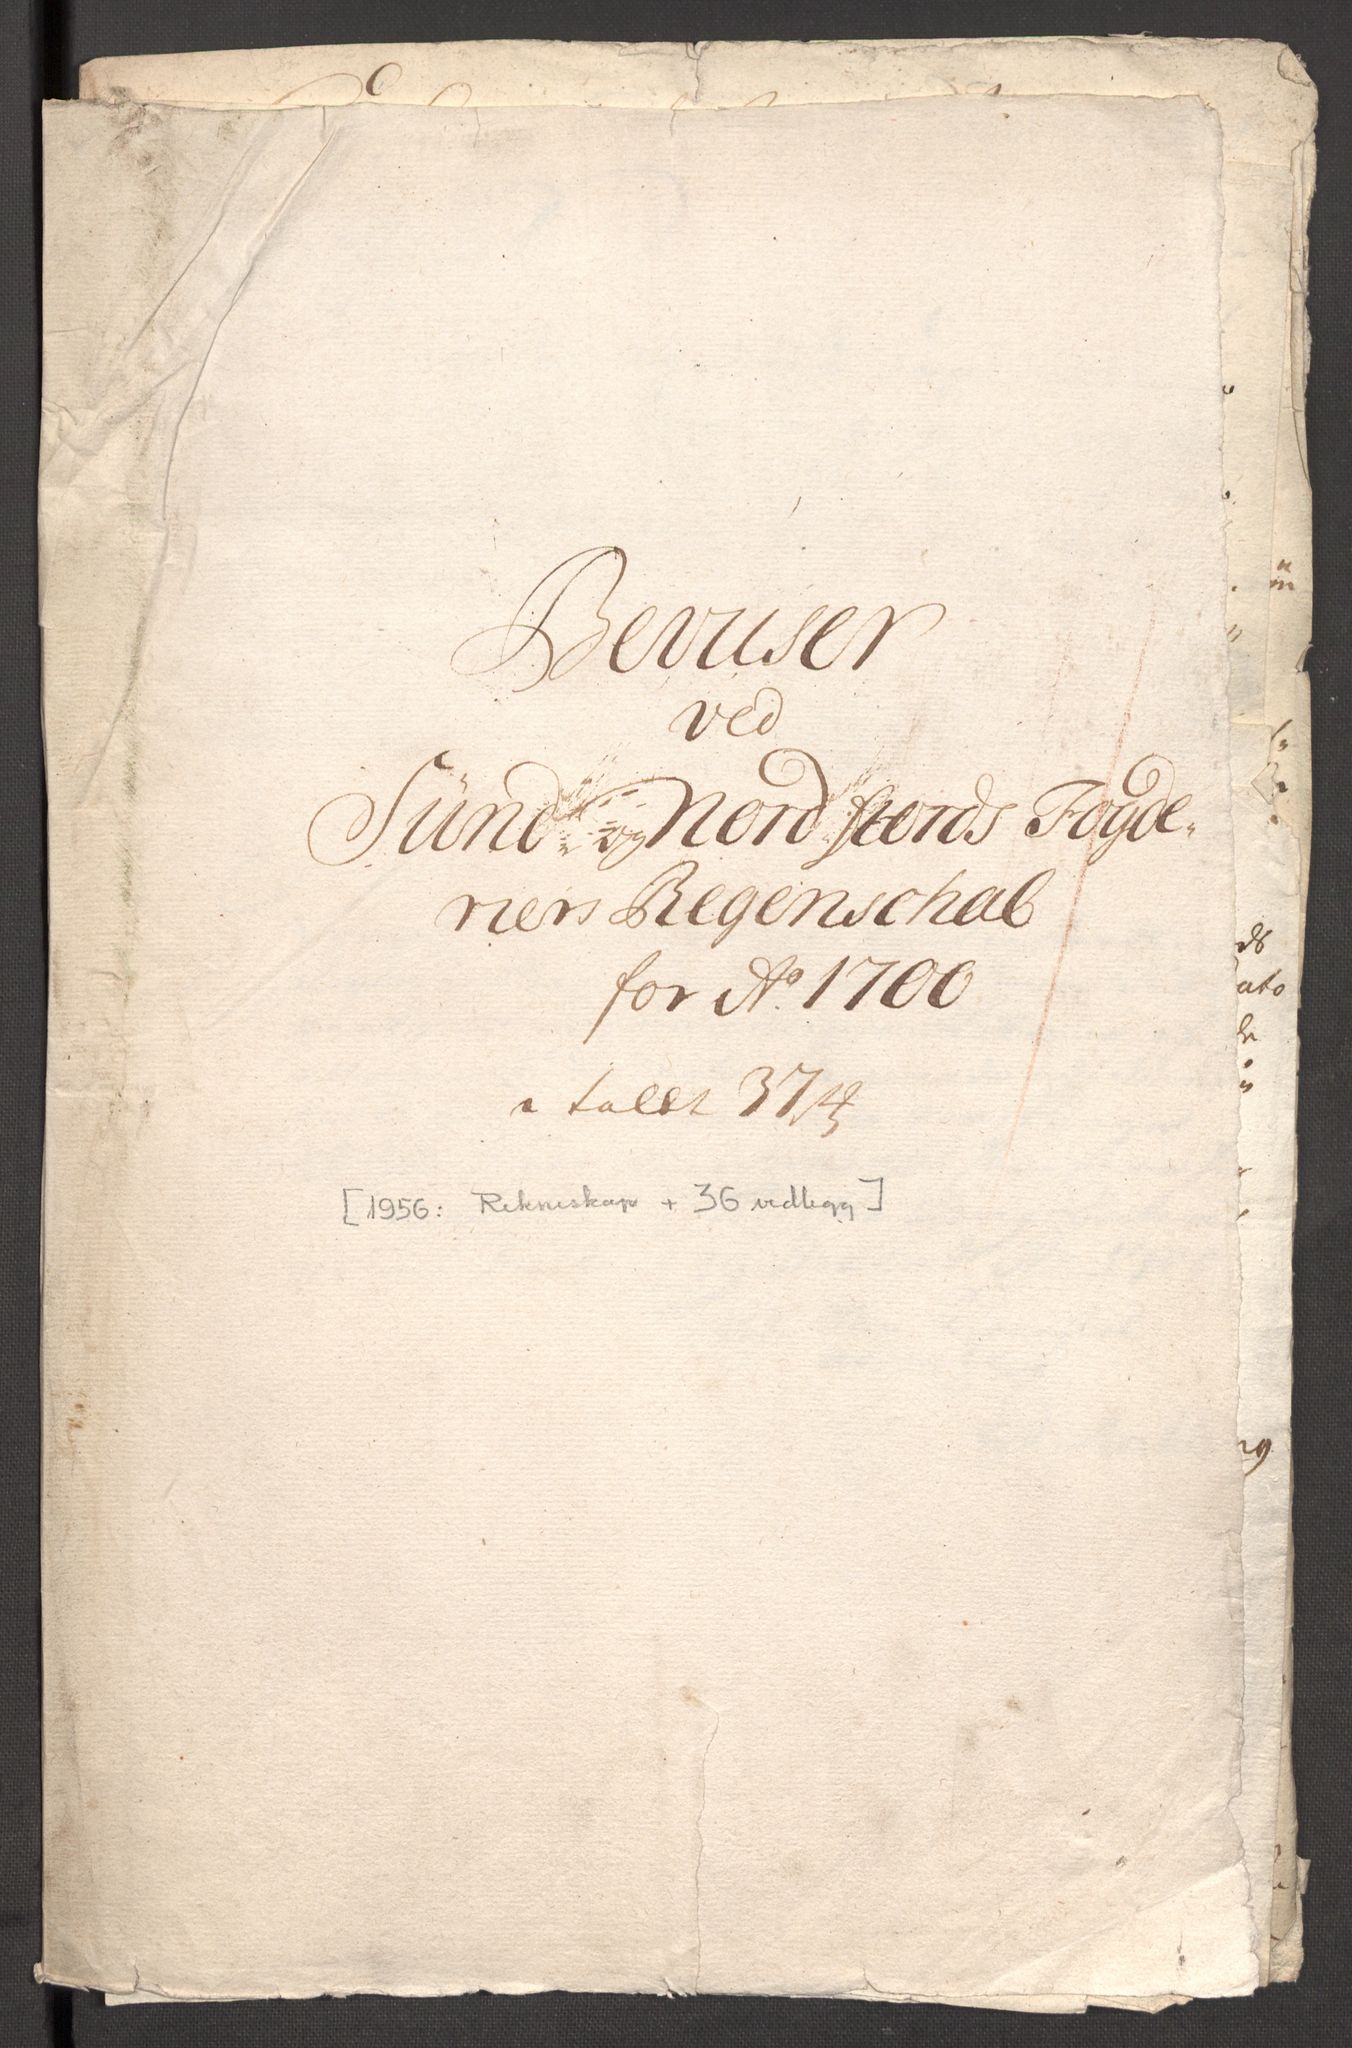 Beviser
ved
Sünd- og Nordfiords Fogde-
riers Regenschab
for Ao. 1700
i tallet 37
[1956: Rekneskap + 36 vedlegg]
ds
ato